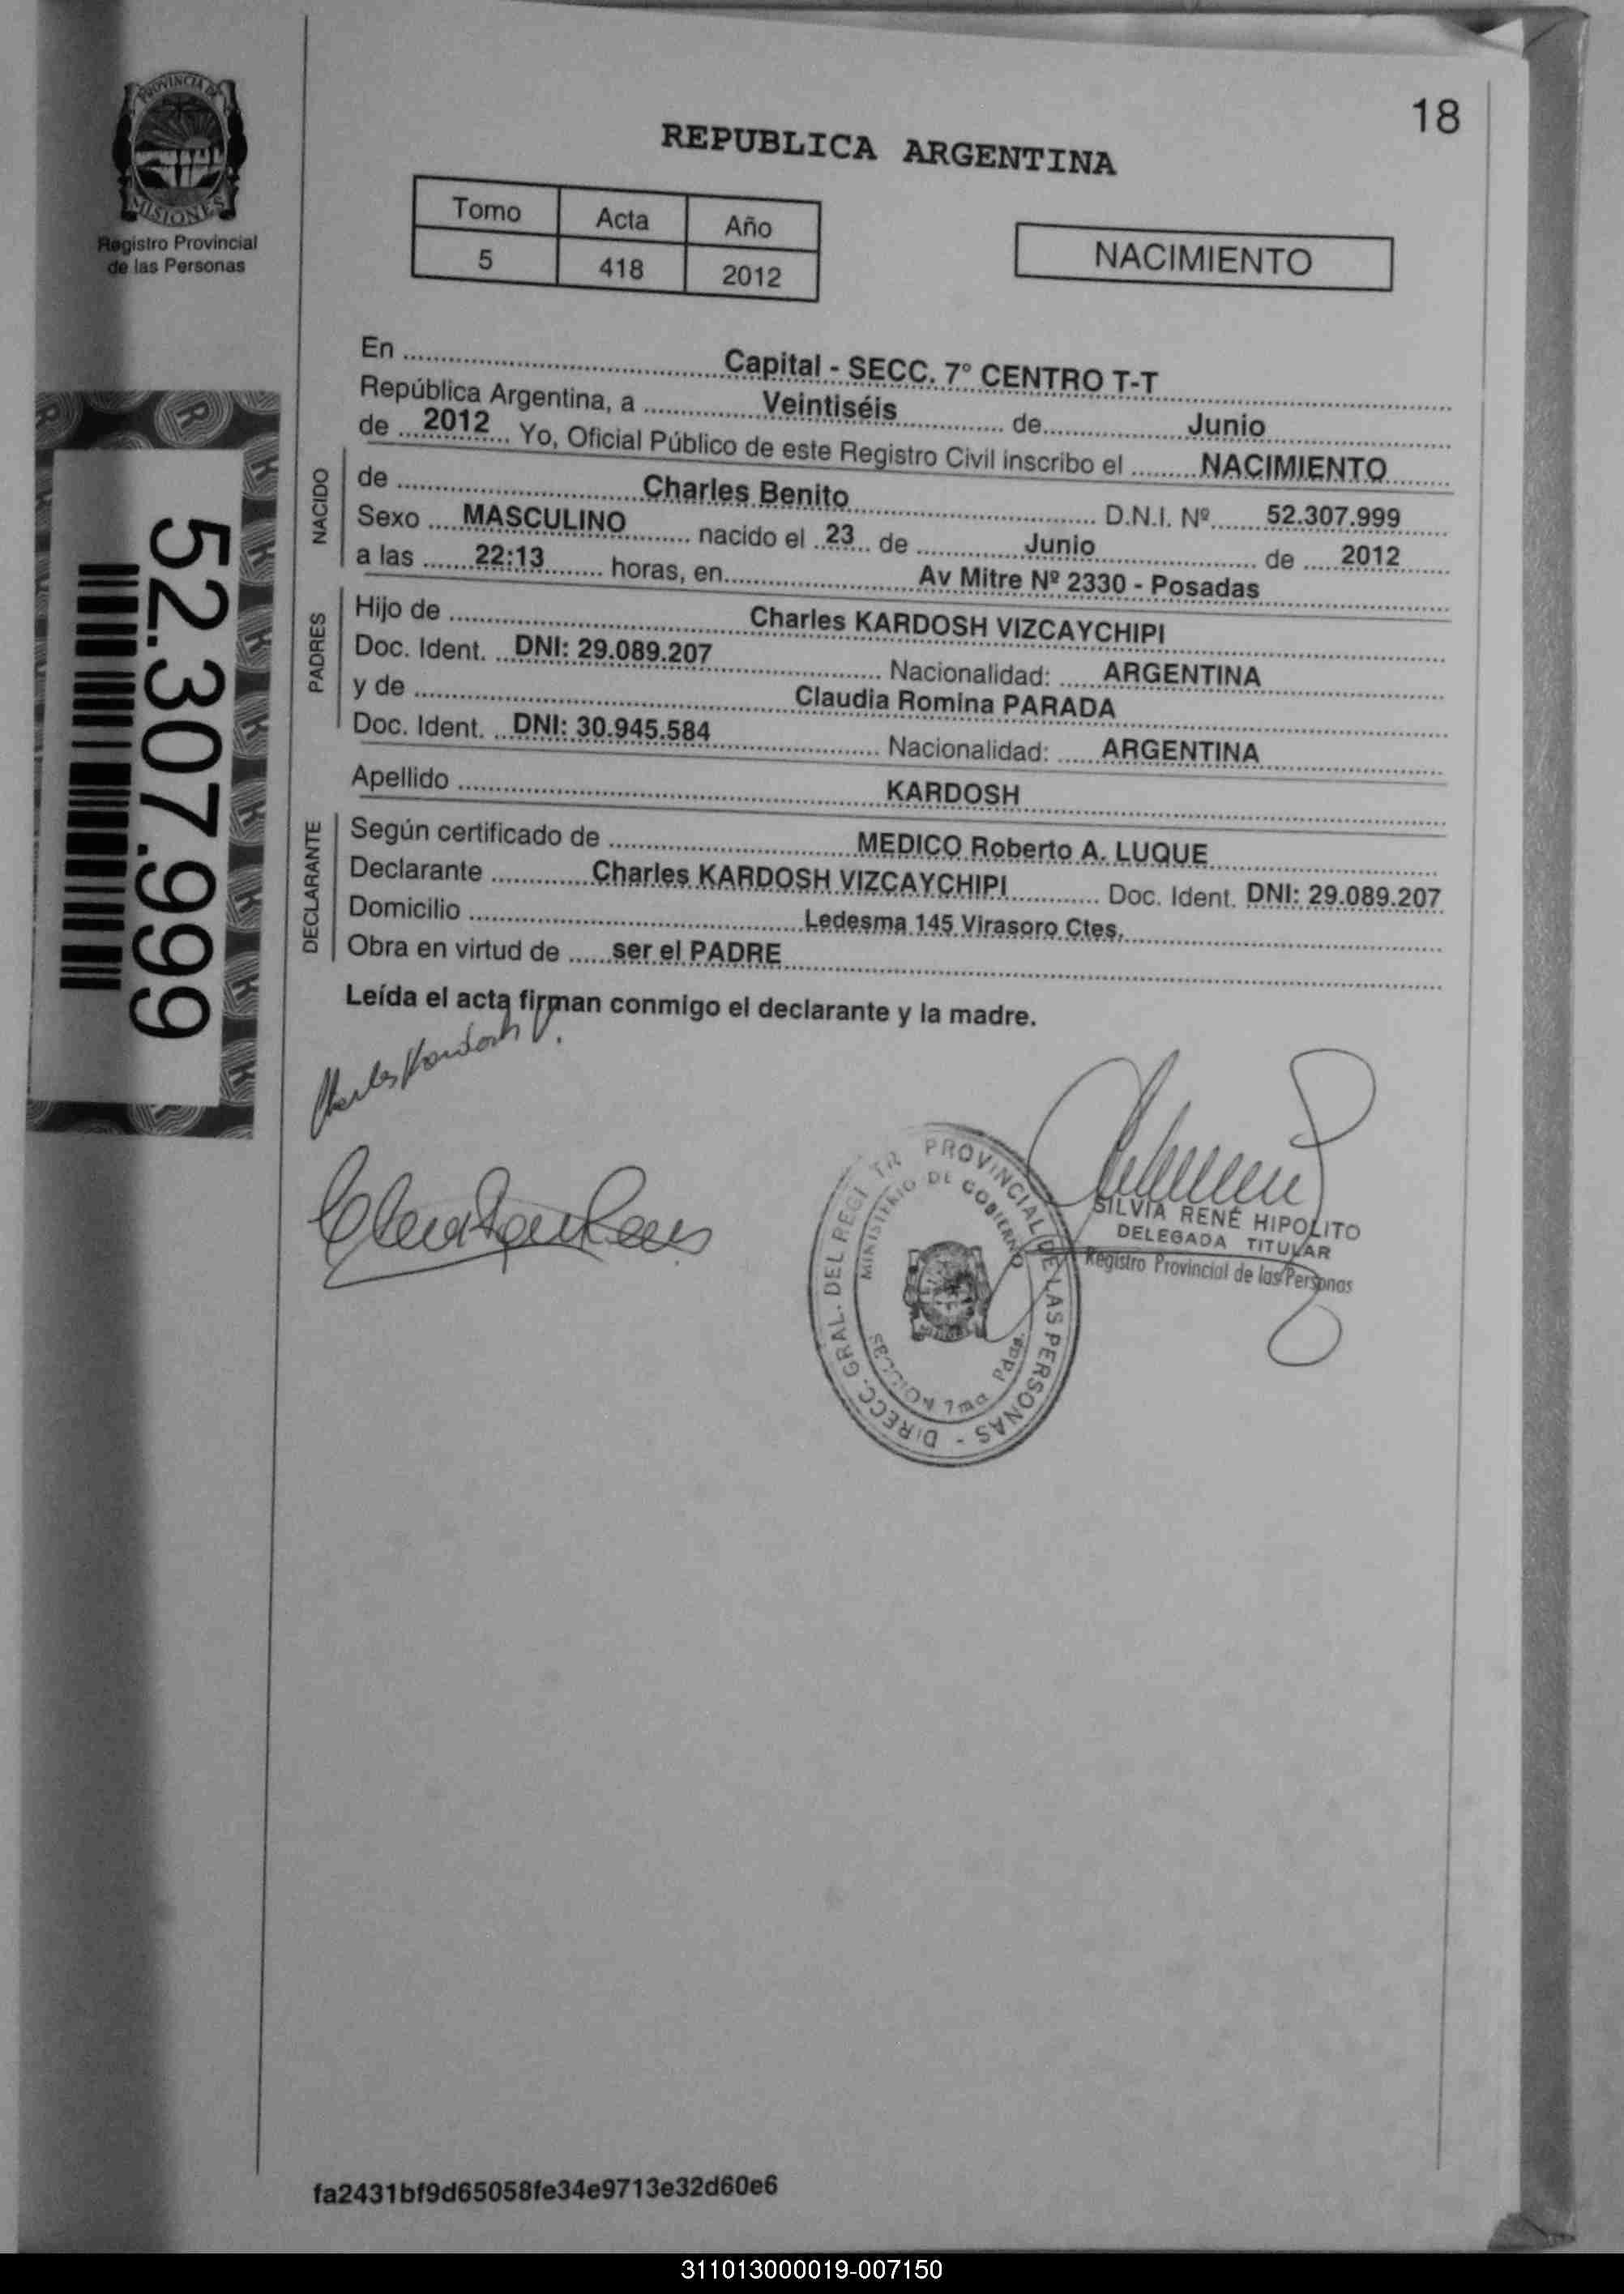 18
REPUBLICA ARGENTINA
PROVINCIA DE
MISIONES
Registro Provincial
de las Personas
Tomo Acta Año
5 418 2012
NACIMIENTO
En Capital - SECC. 7° CENTRO T-T
República Argentina, a Veintiséis de Junio
de 2012 Yo, Oficial Público de este Registro Civil inscribo el NACIMIENTO
NACIDO
de Charles Benito D.N.I. Nº 52.307.999
Sexo MASCULINO nacido el 23 de Junio de 2012
a las 22:13 horas, en Av Mitre Nº 2330 - Posadas
PADRES
Hijo de Charles KARDOSH VIZCAYCHIPI
Doc. Ident. DNI: 29.089.207 Nacionalidad: ARGENTINA
y de Claudia Romina PARADA
Doc. Ident. DNI: 30.945.584 Nacionalidad: ARGENTINA
Apellido KARDOSH
DECLARANTE
Según certificado de MEDICO Roberto A. LUQUE
Declarante Charles KARDOSH VIZCAYCHIPI Doc. Ident. DNI: 29.089.207
Domicilio Ledesma 145 Virasoro Ctes.
Obra en virtud de ser el PADRE
Leída el acta firman conmigo el declarante y la madre.
52.307.999
Charles Kardosh V.
DIRECC. GRAL. DEL REGI TR PROVINCIAL DE LAS PERSONAS -
MINISTERIO DE GOBIERNO
SECCION 7ma Pdas.
SILVIA RENÉ HIPOLITO
DELEGADA TITULAR
Registro Provincial de las Personas
fa2431bf9d65058fe34e9713e32d60e6
311013000019-007150